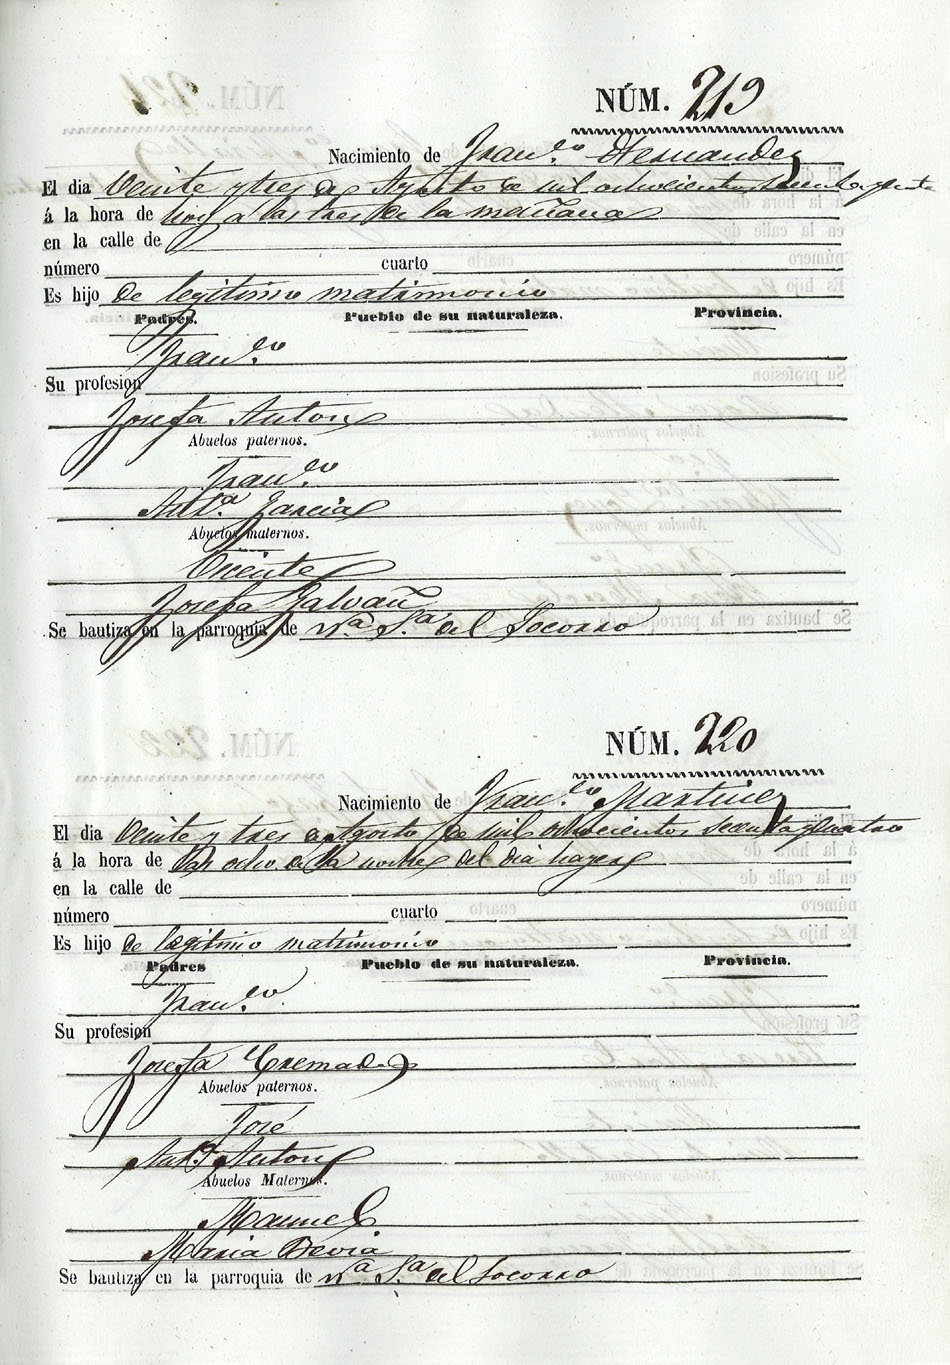 NÚM. 219
Nacimiento de Fran.co Hernandez
El dia Veinte y tres de Agosto de mil ochocientos sesenta y cuatro
á la hora de hoy a las tres de la mañana
en la calle de
número cuarto
Es hijo de legitimo matrimonio
Padres. Pueblo de su naturaleza. Provincia.
Fran.co
Su profesion
Josefa Anton
Abuelos paternos.
Fran.co
Ant.a Garcia
Abuelos maternos.
Vicente
Josefa Galvañ
Se bautiza en la parroquia de N.a S.a del Socorro
NÚM. 220
Nacimiento de Fran.co Martinez
El dia Veinte y tres de Agosto de mil ochocientos sesenta y cuatro
á la hora de las ocho de la noche del dia
en la calle de
número cuarto
Es hijo de legitimo matrimonio
Padres Pueblo de su naturaleza. Provincia.
Fran.co
Su profesion
Josefa Cremades
Abuelos paternos.
José
Ant.a Anton
Abuelos Maternos.
Manuel
Maria Devia
Se bautiza en la parroquia de N.a S.a del Socorro